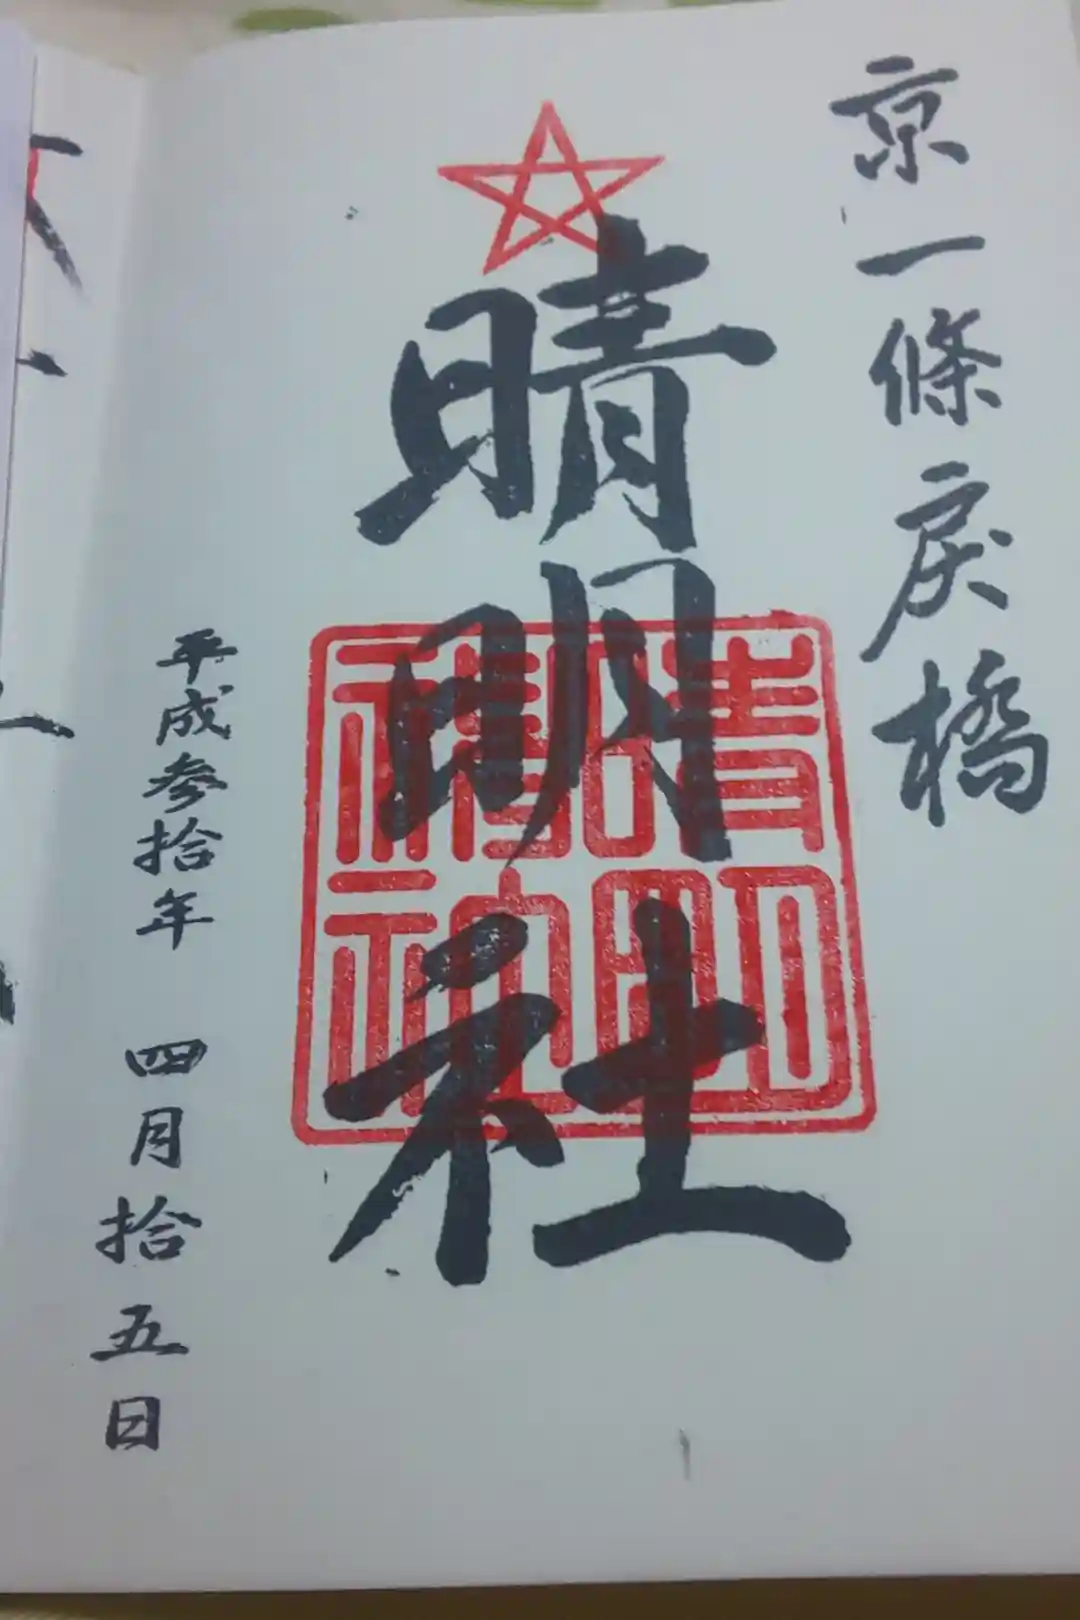 京一條戻橋
晴明社
晴明
平成参拾年 四月拾五日